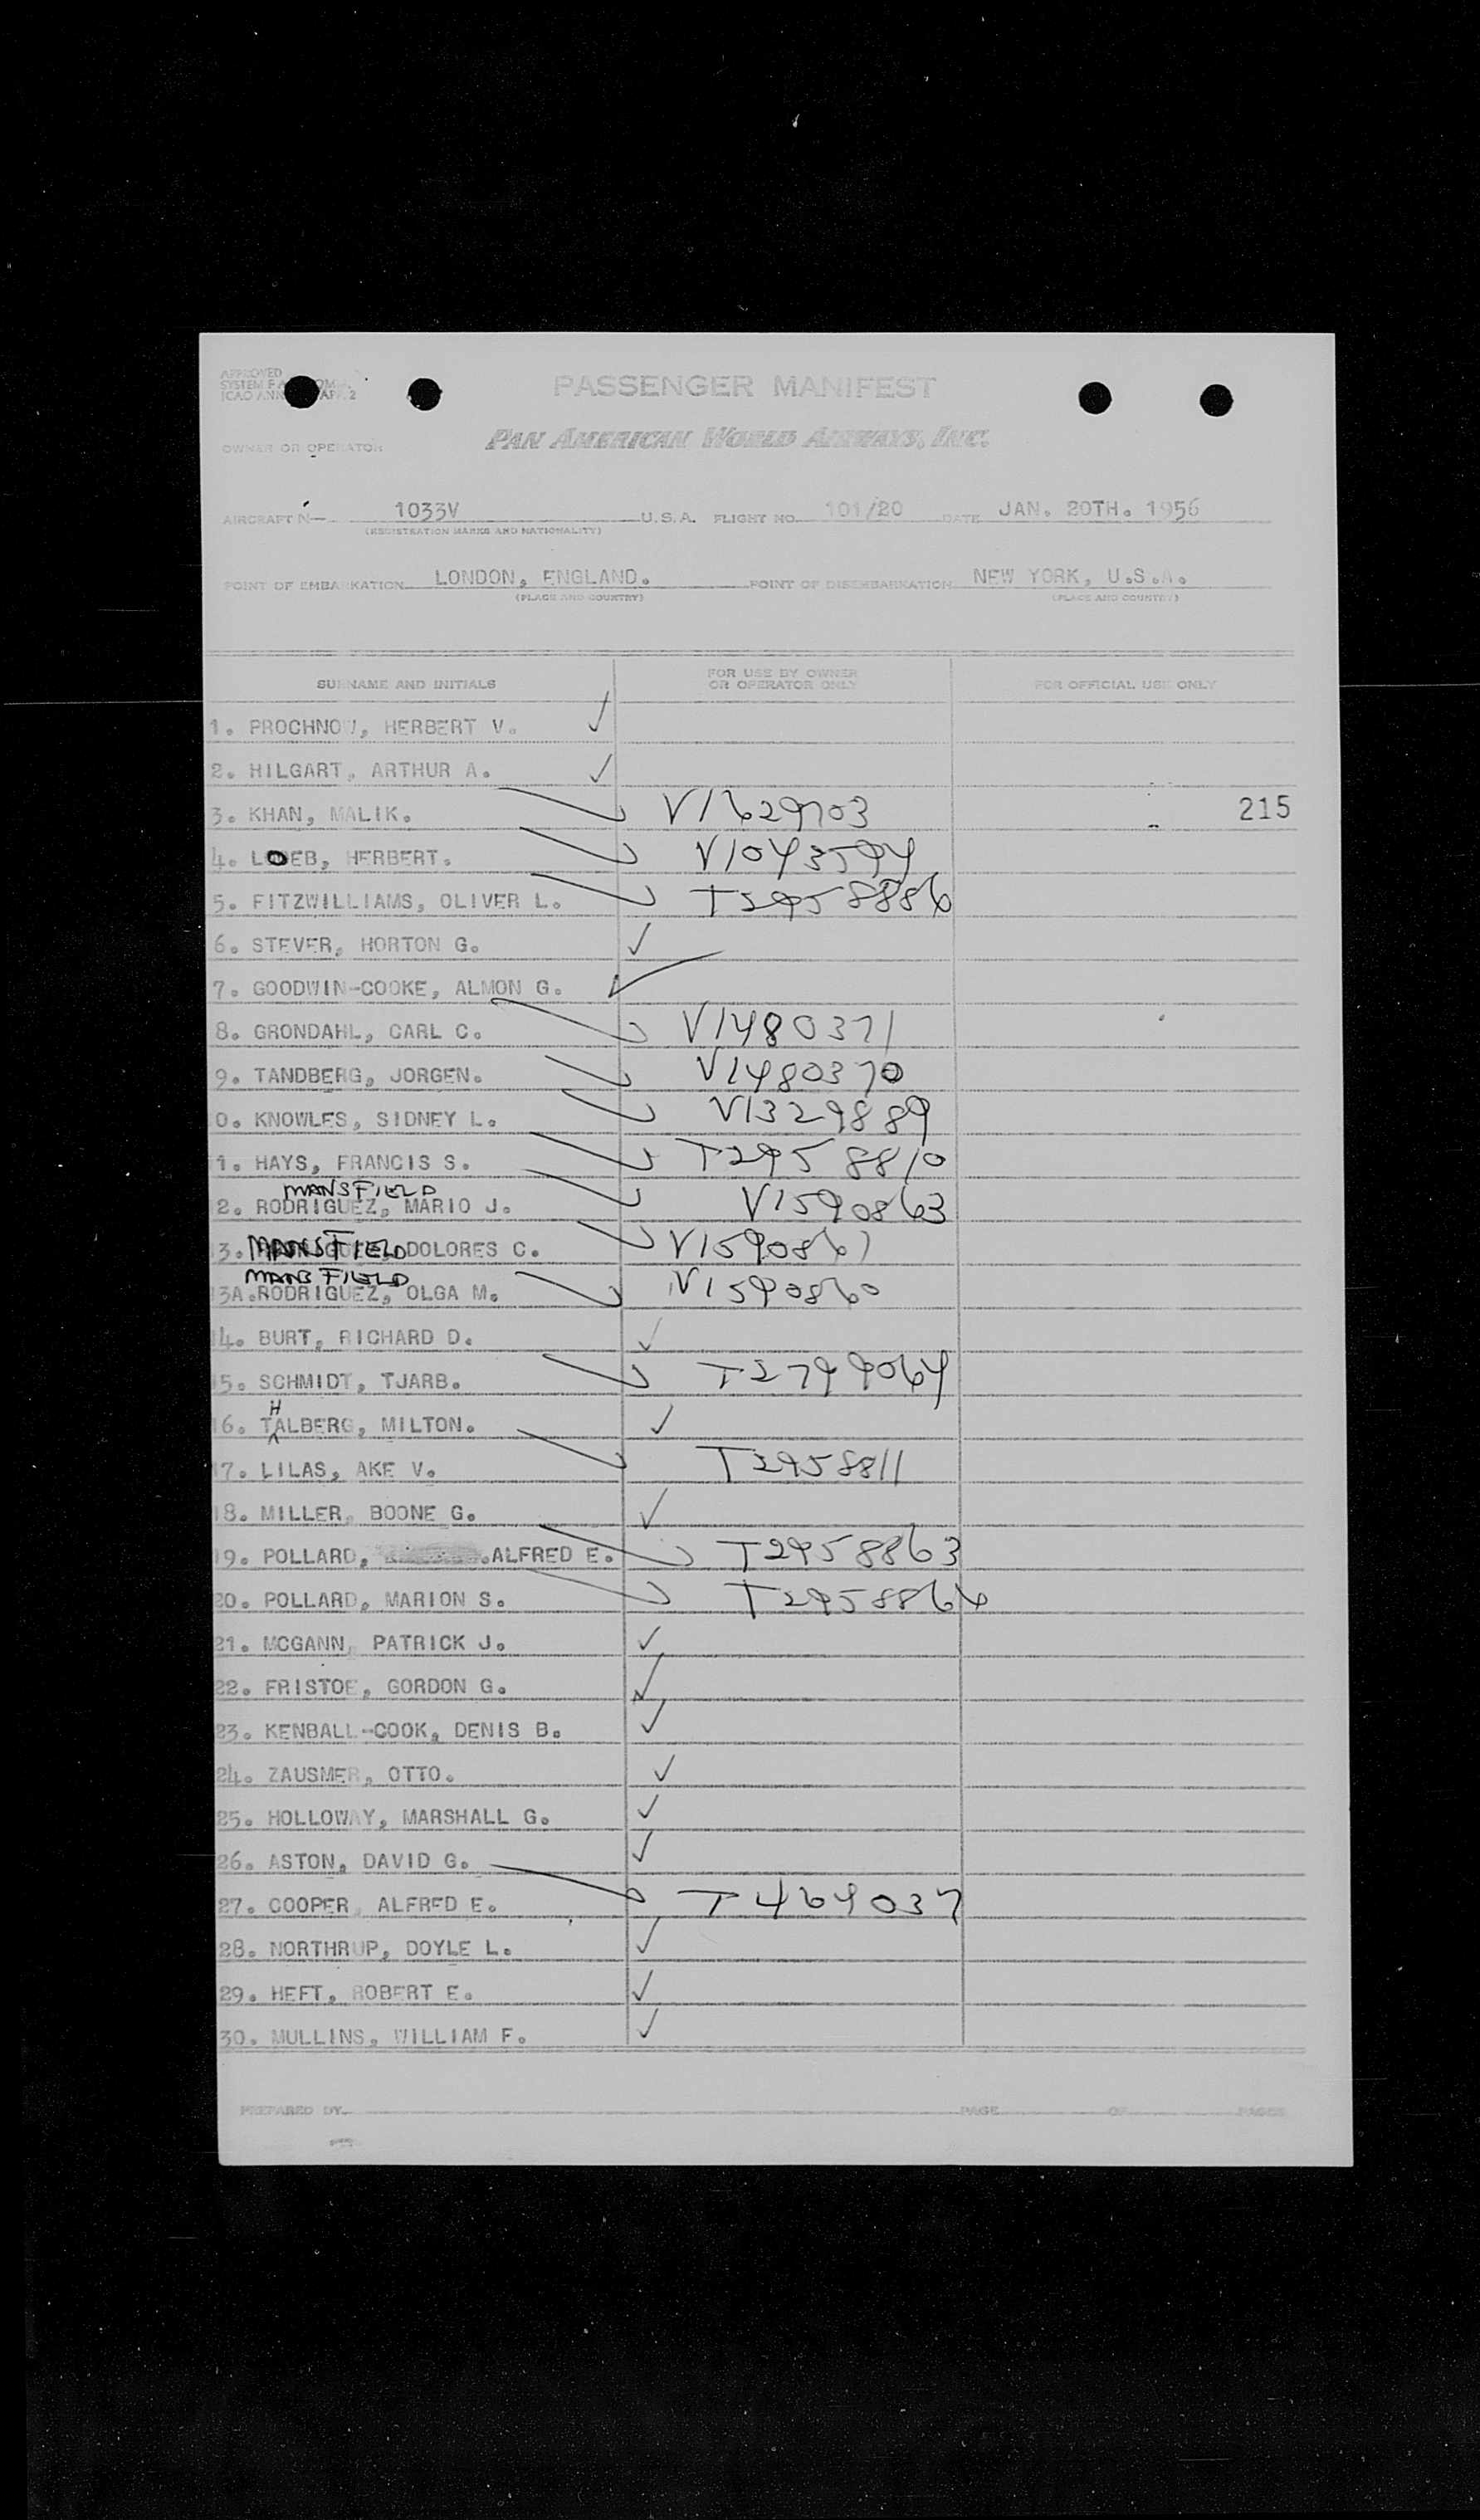 APPROVED
PASSENGER MANIFEST
OWNER OR OPERATOR PAN AMERICAN WORLD AIRWAYS, INC.
AIRCRAFT N— 1033V U.S.A. FLIGHT NO. 101/20 DATE JAN. 20TH. 1956
(REGISTRATION MARKS AND NATIONALITY)
POINT OF EMBARKATION LONDON, ENGLAND. POINT OF DISEMBARKATION NEW YORK, U.S.A.
(PLACE AND COUNTRY) (PLACE AND COUNTRY)
SURNAME AND INITIALS FOR USE BY OWNER OR OPERATOR ONLY FOR OFFICIAL USE ONLY
1. PROCHNOW, HERBERT V. ✓
2. HILGART, ARTHUR A. ✓
3. KHAN, MALIK. V1629703 215
4. LOEB, HERBERT. V1043594
5. FITZWILLIAMS, OLIVER L. T2958886
6. STEVER, HORTON G. ✓
7. GOODWIN-COOKE, ALMON G. ✓
8. GRONDAHL, CARL C. V1480371
9. TANDBERG, JORGEN. V1480370
0. KNOWLES, SIDNEY L. V1329889
1. HAYS, FRANCIS S. T2958810
MANSFIELD
2. RODRIGUEZ, MARIO J. V1590863
3. MANSFIELD DOLORES C. V1590861
MANSFIELD
13A. RODRIGUEZ, OLGA M. V1590860
14. BURT, RICHARD D. ✓
15. SCHMIDT, TJARB. T2799064
H
16. TALBERG, MILTON. ✓
17. LILAS, AKE V. T2958811
18. MILLER, BOONE G. ✓
19. POLLARD, ALFRED E. T2958863
20. POLLARD, MARION S. T2958864
21. MCGANN, PATRICK J. ✓
22. FRISTOE, GORDON G. ✓
23. KENBALL-COOK, DENIS B. ✓
24. ZAUSMER, OTTO. ✓
25. HOLLOWAY, MARSHALL G. ✓
26. ASTON, DAVID G. ✓
27. COOPER, ALFRED E. T464037
28. NORTHRUP, DOYLE L. ✓
29. HEFT, ROBERT E. ✓
30. MULLINS, WILLIAM F. ✓
PREPARED BY PAGE OF PAGES